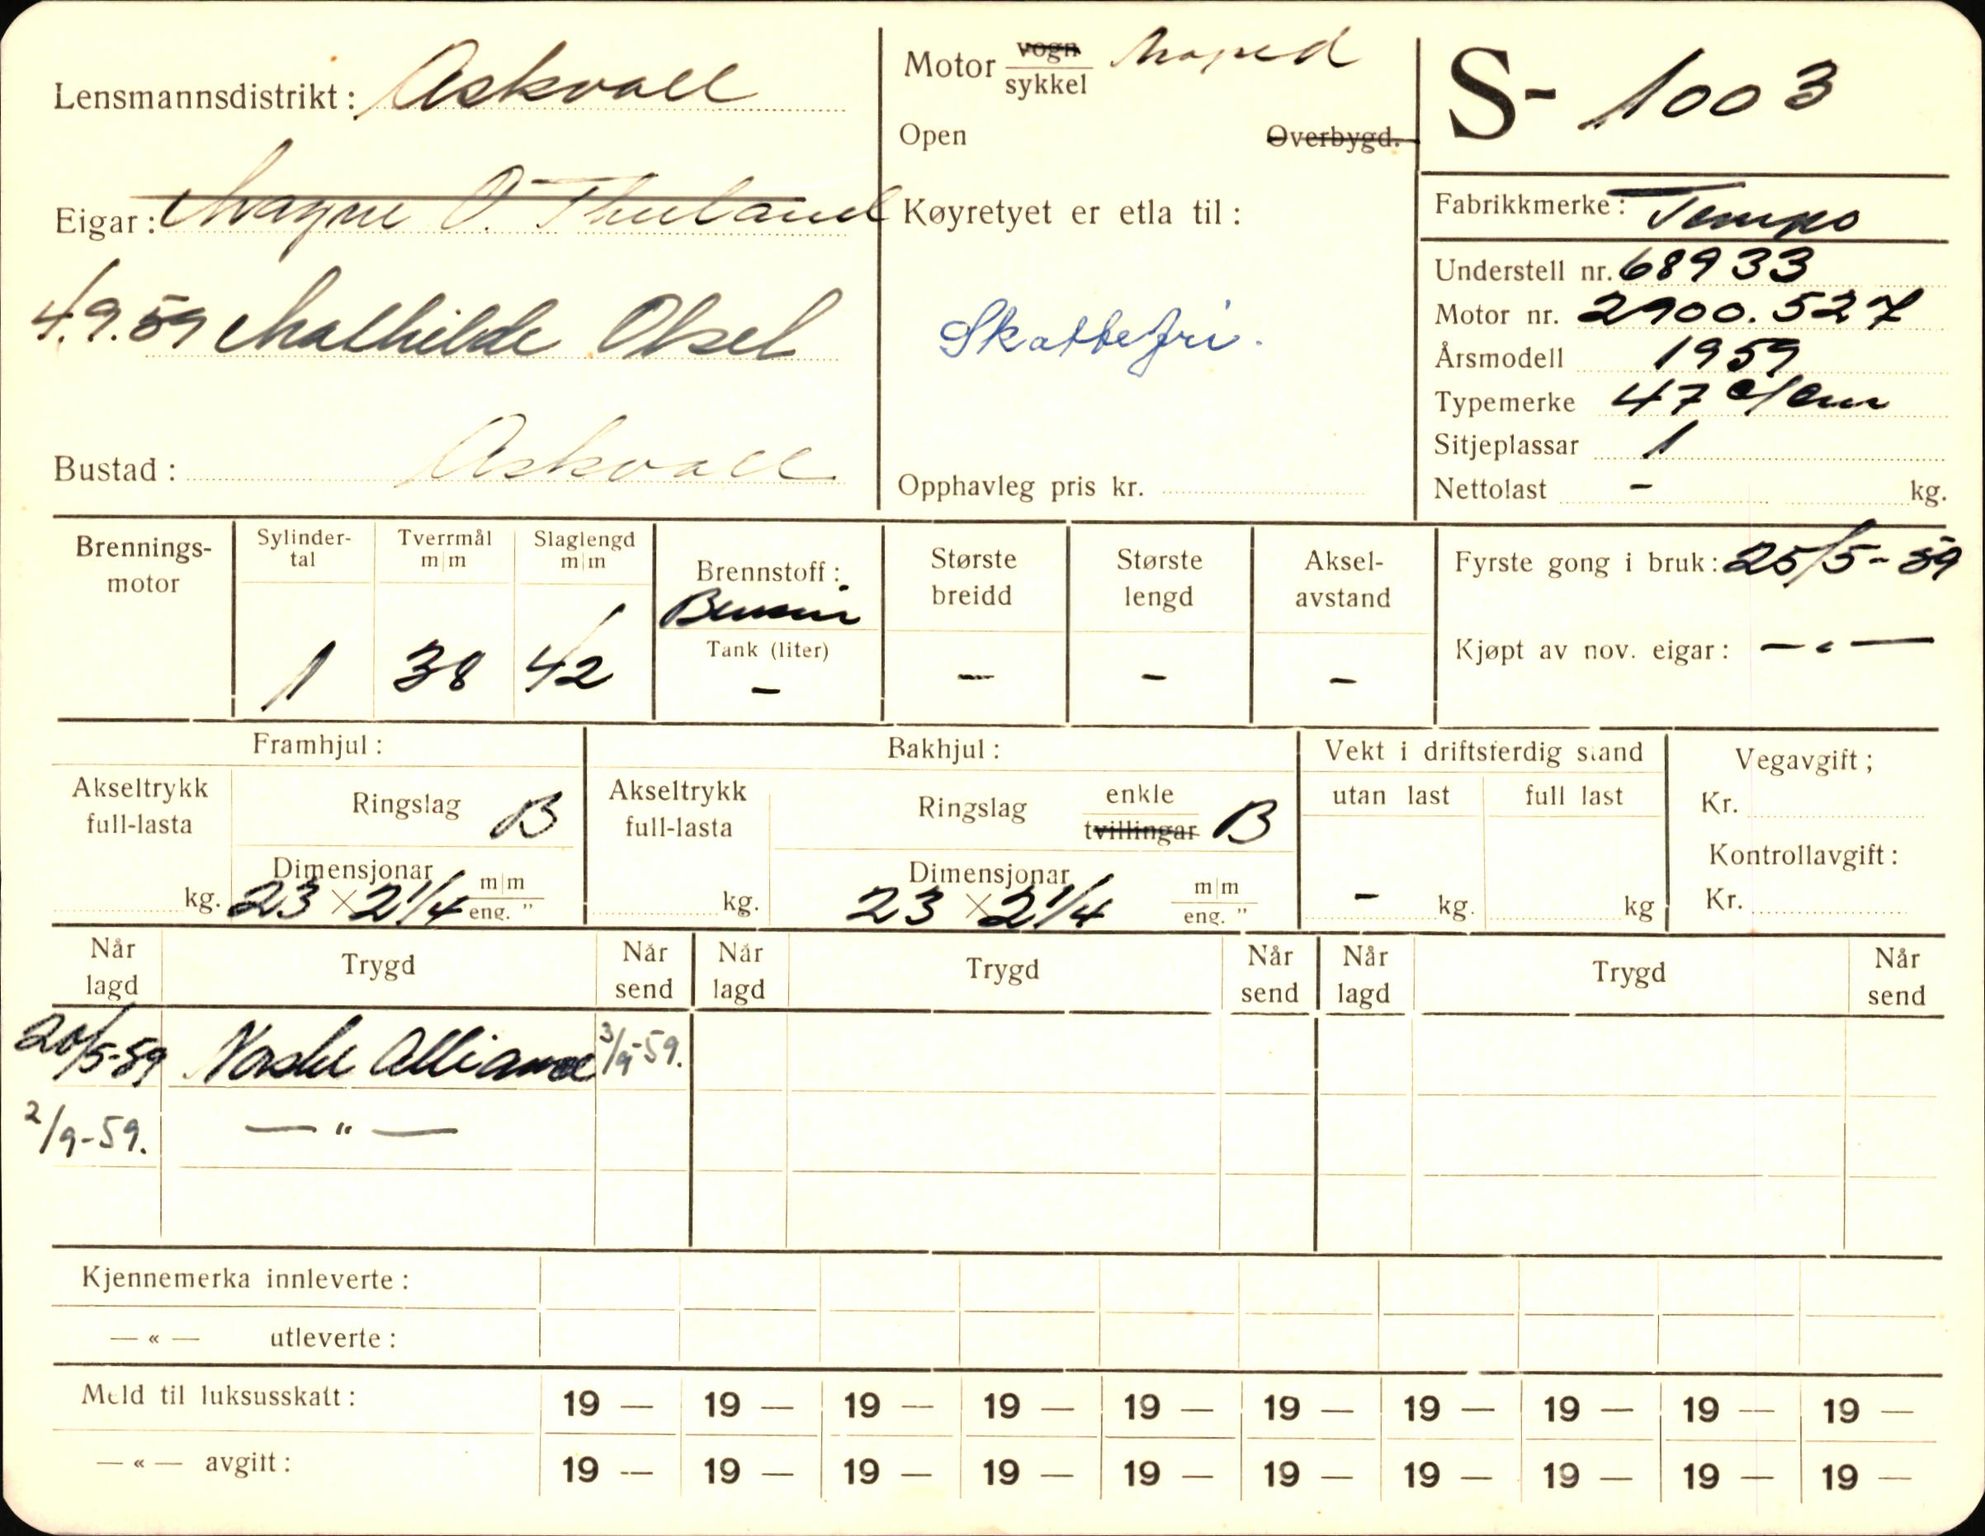 Lensmannsdistrikt: Askvoll
Eigar: Magne O. Thuland
4.9.59 Mathilde Olsel
Bustad: Askvoll
Motor vogn/sykkel Moped
Open Overbygd.
Køyretyet er etla til:
Skattefri.
Opphavleg pris kr.
S- 1003
Fabrikkmerke: Tempo
Understell nr. 68933
Motor nr. 2900.527
Årsmodell 1959
Typemerke 47 c/cm
Sitjeplassar 1
Nettolast - kg.
Brennings-motor
Sylinder-tal 1
Tverrmål m/m 38
Slaglengd m/m 42
Brennstoff: Bensin
Tank (liter) -
Største breidd -
Største lengd -
Aksel-avstand -
Fyrste gong i bruk: 25/5-59
Kjøpt av nov. eigar: — " —
Framhjul:
Akseltrykk full-lasta kg.
Ringslag B
Dimensjonar 23 × 2 1/4 m/m eng. "
Bakhjul:
Akseltrykk full-lasta kg.
Ringslag enkle tvillingar B
Dimensjonar 23 × 2 1/4 m/m eng. "
Vekt i driftsferdig stand
utan last - kg.
full last kg
Vegavgift;
Kr.
Kontrollavgift:
Kr.
Når lagd Trygd Når send Når lagd Trygd Når send Når lagd Trygd Når send
20/5-59 Norske Alliance 3/9-59.
2/9-59. — " —
Kjennemerka innleverte:
— « — utleverte:
Meld til luksusskatt: 19 — 19 — 19 — 19 — 19 — 19 — 19 — 19 — 19 — 19 —
— « — avgitt: 19 — 19 — 19 — 19 — 19 — 19 — 19 — 19 — 19 — 19 —